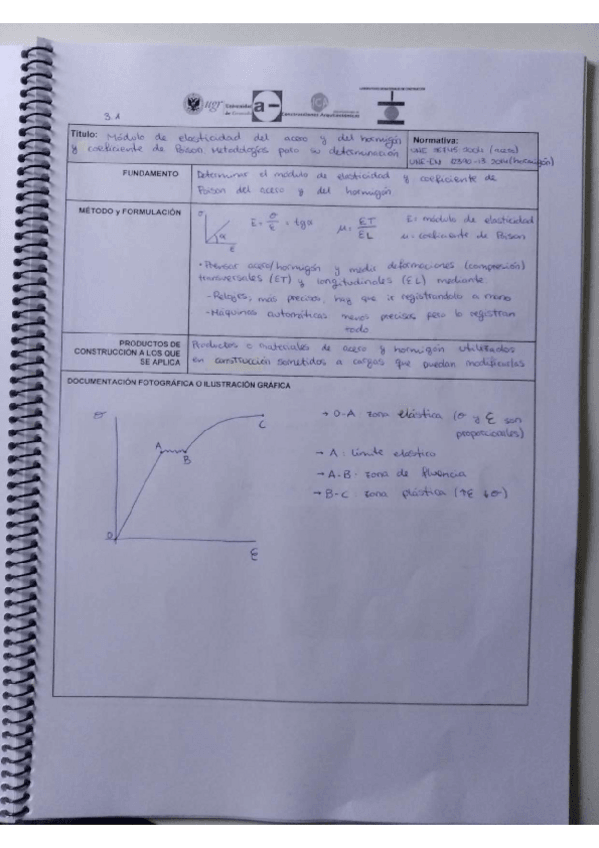 3.1
ugr
a-
Título: Módulo de elasticidad del acero y del hormigón
y coeficiente de Poison Metodologías para su determinación
Normativa:
(acero)
UNE-EN 12390-13 2014 (hormigón)
FUNDAMENTO
Determinar el módulo de elasticidad y coeficiente de
Poison del acero y del hormigón
MÉTODO y FORMULACIÓN
σ α ε
E = σ/ε = tgα
μ = ET/EL
E = módulo de elasticidad
μ = coeficiente de Poison
• Prensar acero/hormigón y medir deformaciones (compresión)
transversales (ET) y longitudinales (EL) mediante:
- Relojes, más precisos, hay que ir registrandolo a mano
- Maquinas automáticas menos precisas pero lo registran
todo
PRODUCTOS DE
CONSTRUCCIÓN A LOS QUE
SE APLICA
Productos o materiales de acero y hormigón utilizados
en construcción sometidos a cargas que puedan modificarlas
DOCUMENTACIÓN FOTOGRÁFICA O ILUSTRACIÓN GRÁFICA
σ
A
B
C
O
ε
→ O-A zona elástica (σ y ε son
proporcionales)
→ A: Límite elástico
→ A-B: zona de fluencia
→ B-C: zona plástica (↑ε ↓σ)